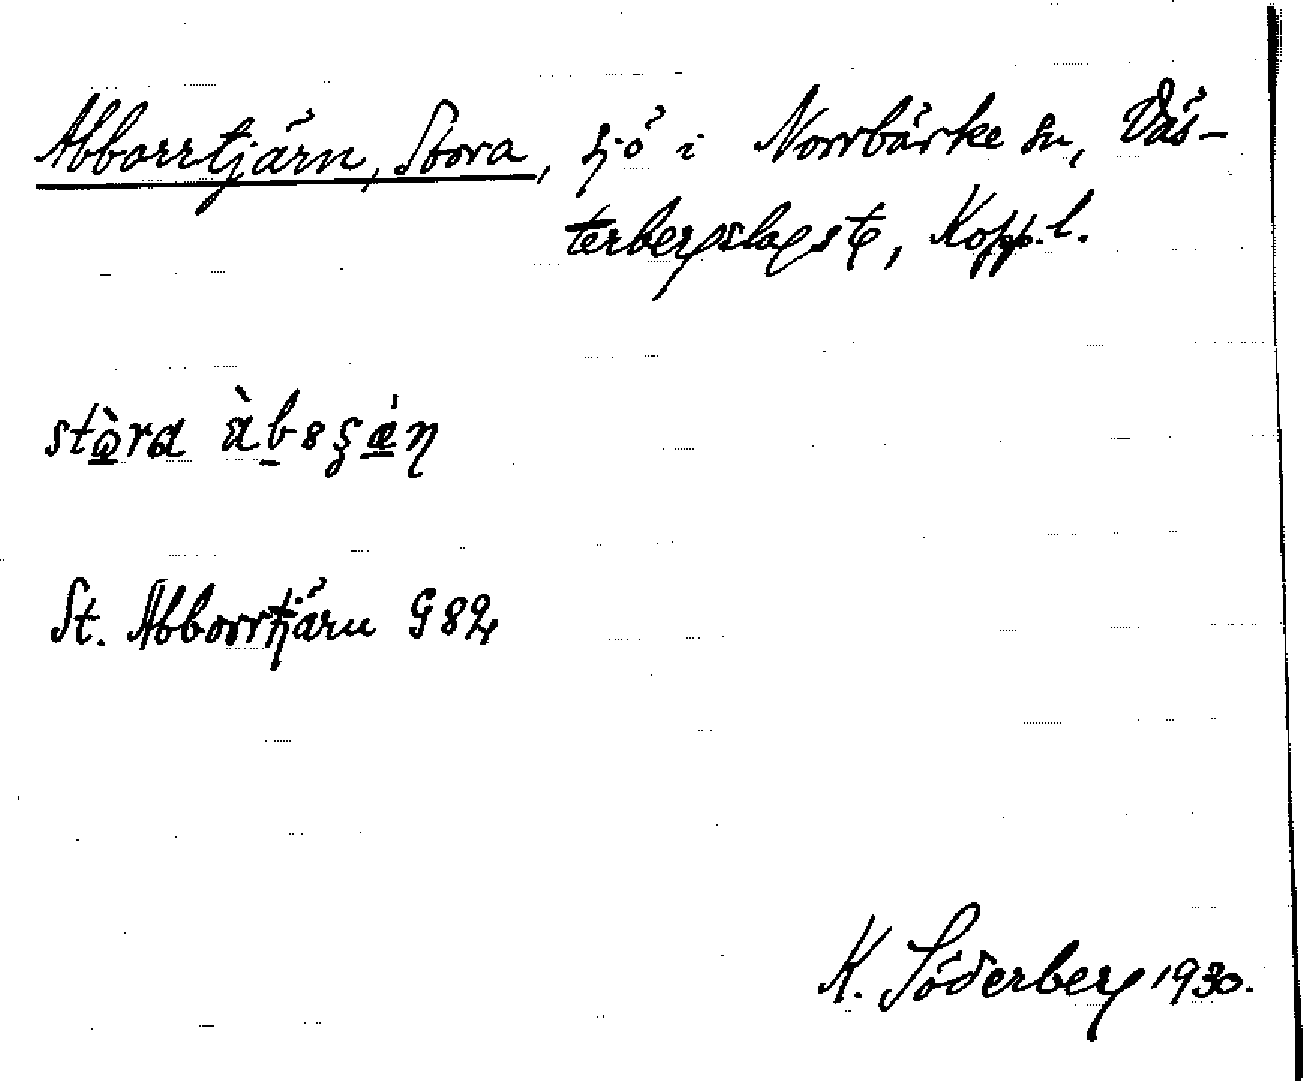 Abborrtjärn, Stora, sjö i Norrbärke sn, Väs-
terbergslags tg, Kopp. l.
stora
St. Abborrtjärn G 82
K. Söderberg 1930.